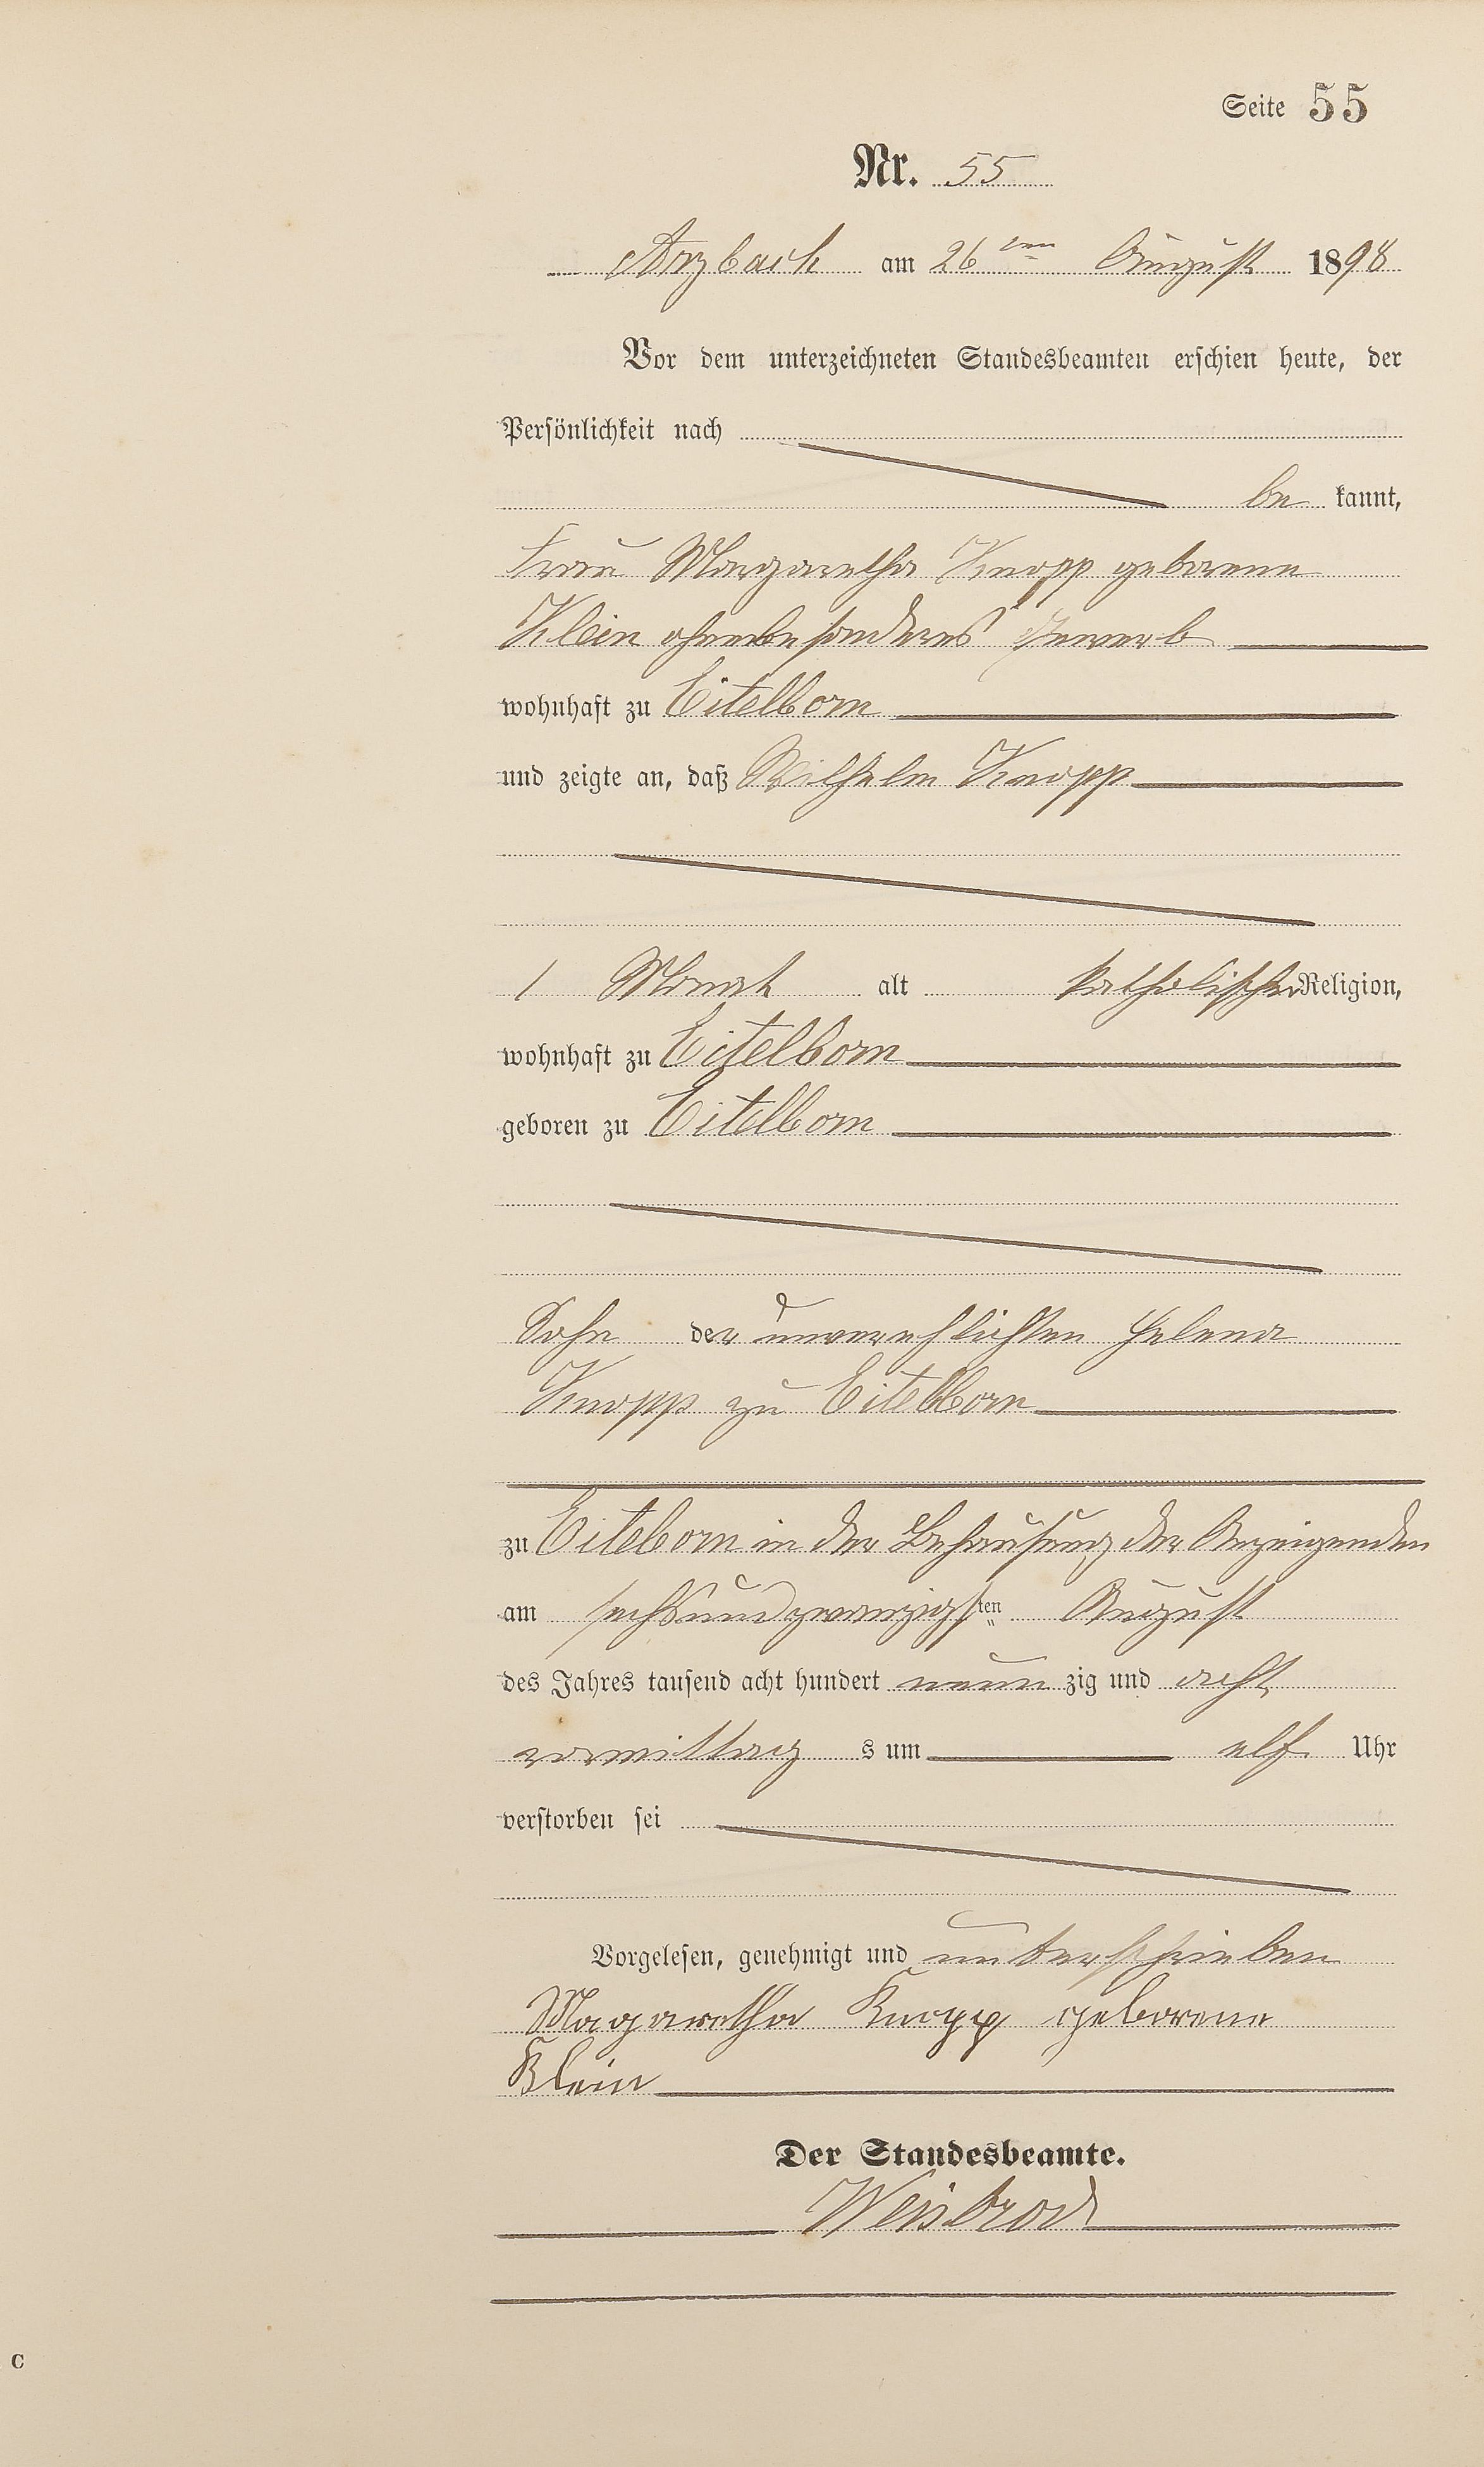 Seite 55
Nr. 55
Arzbach am 26ten August 1898
Vor dem unterzeichneten Standesbeamten erschien heute, der
Persönlichkeit nach
be kannt,
Frau Margaretha Knopp geborene
Klein ohne besonderes Gewerb
wohnhaft zu Eitelborn
und zeigte an, daß Wilhelm Knopp
1 Monat alt katholischer Religion,
wohnhaft zu Eitelborn
geboren zu Eitelborn
Sohn der unverehlichten Helena
Knopp zu Eitelborn
zu Eitelborn in der Behausung der Anzeigenden
am sechsundzwanzigsten August
des Jahres tausend acht hundert neun zig und acht
vormittag s um elf Uhr
verstorben sei
Vorgelesen, genehmigt und unterschrieben
Magaretha Knopp geborene
Klein
Der Standesbeamte.
Weisbrod
C